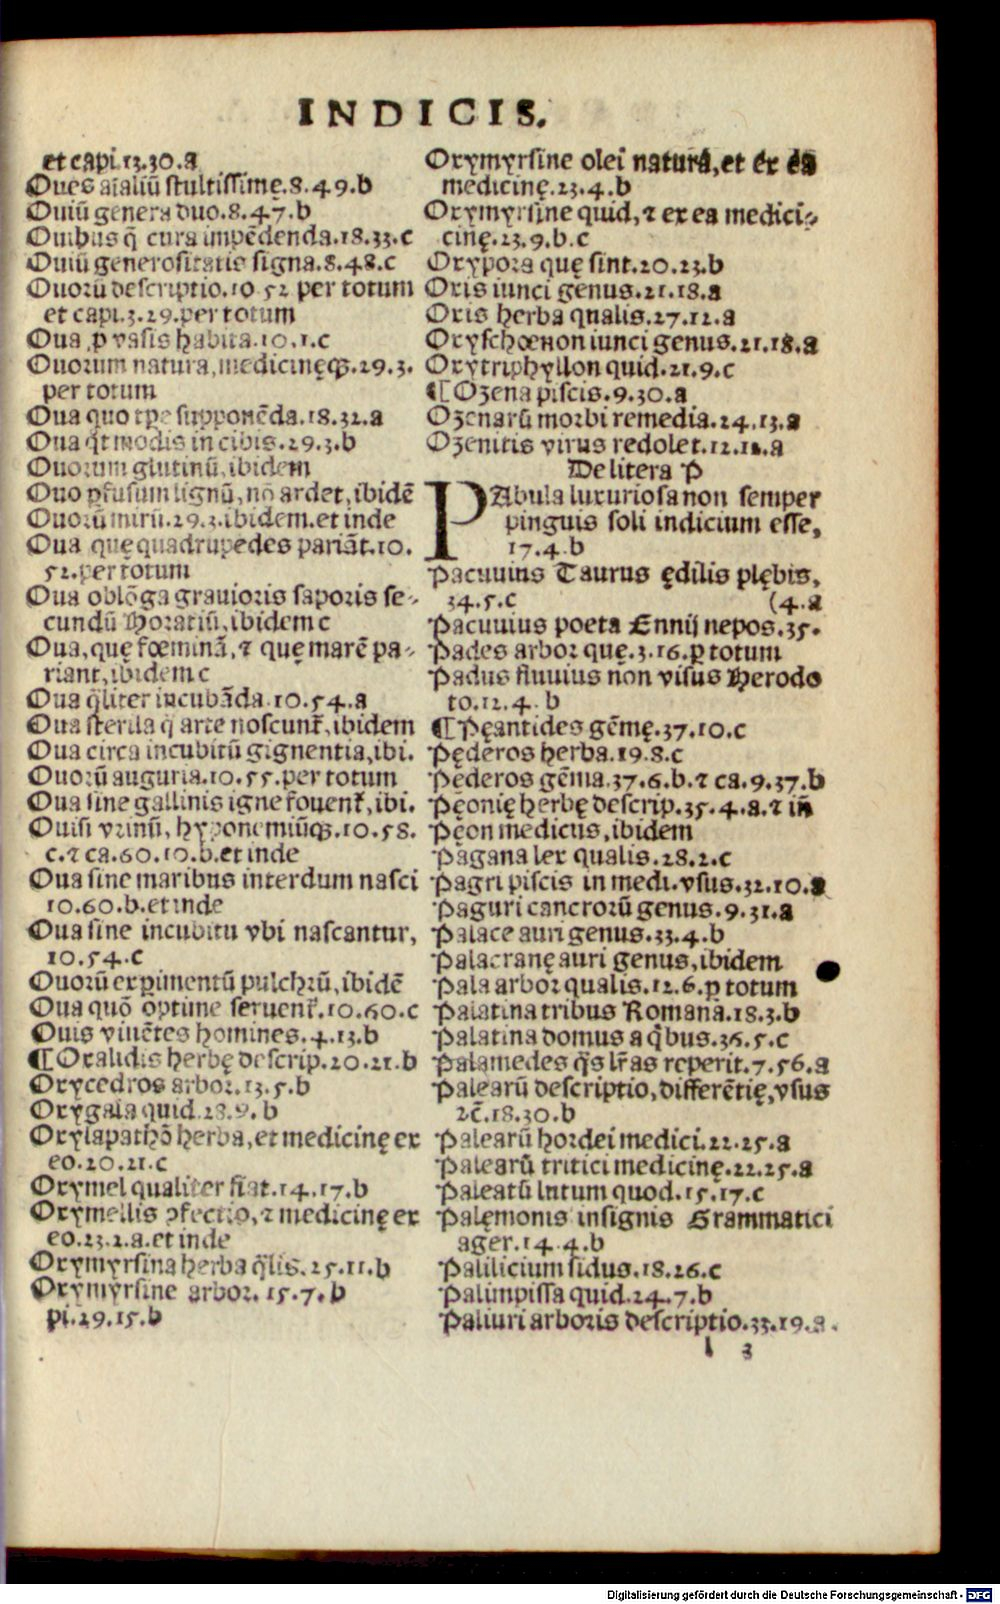 INDICIS.
et capi.13.30.a
Oues aĩaliũ stultissimę.8.49.b
Ouiũ genera duo.8.47.b
Ouibus q̃ cura impẽdenda.18.33.c
Ouiũ generositatis signa.8.48.c
Ouorũ descriptio.10 52 per totum
et capi.3.29.per totum
Oua ꝓ vasis habita.10.1.c
Ouorum natura, medicinęqꝫ.29.3.
per totum
Oua quo tp̃e supponẽda.18.32.a
Oua qt modis in cibis.29.3.b
Ouorum glutinũ, ibidem
Ouo ꝑfusum lignũ, nõ ardet, ibidẽ
Ouorũ mirũ.29.3.ibidem.et inde
Oua quę quadrupedes pariãt.10.
52.per totum
Oua oblõga grauioris saporis se⸗
cundũ Horatiũ, ibidem c
Oua, quę fœminã, ⁊ quę marẽ pa⸗
riant, ibidem c
Oua q̃liter incubãda.10.54.a
Oua sterila q̃ arte noscunt̃, ibidem
Oua circa incubitũ gignentia, ibi.
Ouorũ auguria.10.55.per totum
Oua sine gallinis igne fouent̃, ibi.
Ouisi vrinũ, hyponemiũqꝫ.10.58.
c.⁊ ca.60.10.b.et inde
Oua sine maribus interdum nasci
10.60.b.et inde
Oua sine incubitu vbi nascantur,
10.54.c
Ouorũ exꝑimentũ pulchrũ, ibidẽ
Oua quõ optime seruent̃.10.60.c
Ouis viuẽtes homines.4.13.b
¶ Oxalidis herbę descrip.20.21.b
Oxycedros arbor.13.5.b
Oxygala quid.28.9.b
Oxylapathõ herba, et medicinę ex
eo.20.21.c
Oxymel qualiter fiat.14.17.b
Oxymellis ꝯfectio, ⁊ medicinę ex
eo.23.2.a.et inde
Oxymyrsina herba q̃lis.25.11.b
Oxymyrsine arbor.15.7.b
pi.29.15.b
Oxymyrsine olei natura, et ex ea
medicinę.23.4.b
Oxymyrsine quid, ⁊ ex ea medici⸗
cinę.23.9.b.c
Oxypora quę sint.20.23.b
Oxis iunci genus.21.18.a
Oxis herba qualis.27.12.a
Oxyschœnon iunci genus.21.18.a
Oxytriphyllon quid.21.9.c
¶ Ozena piscis.9.30.a
Ozenarũ morbi remedia.24.13.a
Ozenitis virus redolet.12.12.a
De litera P
PAbula luxuriosa non semper
pinguis soli indicium esse,
17.4.b
Pacuuius Taurus ędilis plębis,
34.5.c (4.a
Pacuuius poeta Ennij nepos.35.
Pades arbor quę.3.16.ꝑ totum
Padus fluuius non visus Herodo
to.12.4.b
¶ Pęantides gẽmę.37.10.c
Pęderos herba.19.8.c
Pęderos gẽma.37.6.b.⁊ ca.9.37.b
Pęonię herbę descrip.35.4.a.⁊ iñ
Pęon medicus, ibidem
Pagana lex qualis.28.2.c
Pagri piscis in medi.vsus.32.10.a
Paguri cancrorũ genus.9.31.a
Palace auri genus.33.4.b
Palacranę auri genus, ibidem
Pala arbor qualis.12.6.ꝑ totum
Palatina tribus Romana.18.3.b
Palatina domus a q̃bus.36.5.c
Palamedes q̃s lr̃as reperit.7.56.a
Palearũ descriptio, differẽtię, vsus
⁊c̃.18.30.b
Palearũ hordei medici.22.25.a
Palearũ tritici medicinę.22.25.a
Paleatũ lutum quod.15.17.c
Palęmonis insignis Grammatici
ager.14.4.b
Palilicium sidus.18.26.c
Palimpissa quid.24.7.b
Paliuri arboris descriptio.33.19.a.
l 3
Digitalisierung gefördert durch die Deutsche Forschungsgemeinschaft - DFG